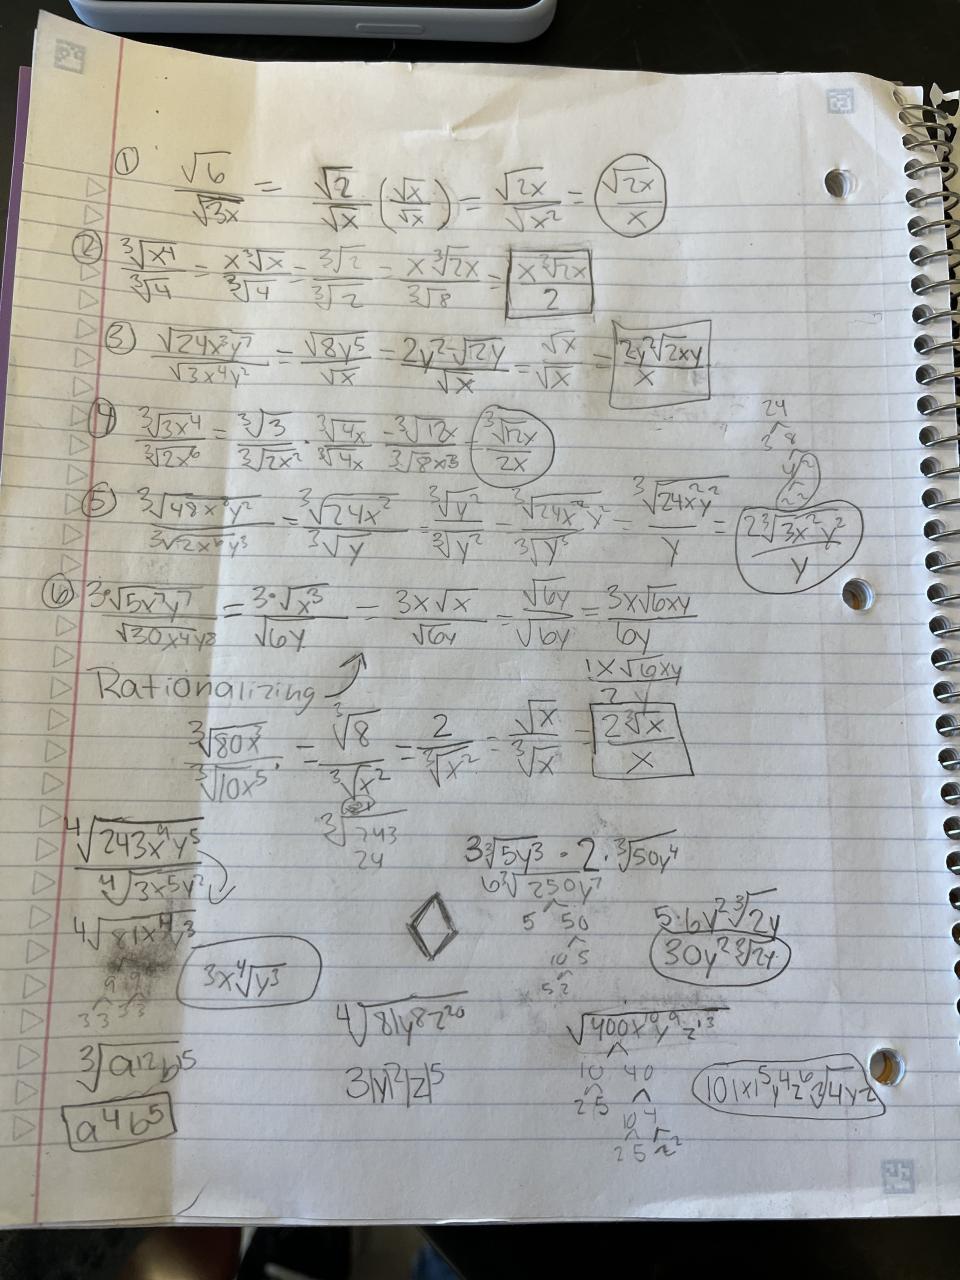 ① √6/√3x = √2/√x (√x/√x) = √2x/√x² = √2x/x
② ³√x⁴/³√4 = x³√x/³√4 = ³√2/³√2 = x³√2x/³√8 = x³√2x/2
③ √24x³y⁷/√3x⁴y² = √8y⁵/√x = 2y²√2y/√x = √x/√x = 2y²√2xy/x
④ ³√3x⁴/³√2x⁶ = ³√3/³√2x² · ³√4x/³√4x = ³√12x/³√8x³ ³√12x/2x
24
3 8
4 2
2 2
⑤ ³√48x⁸y²/³√2x⁶y³ = ³√24x²/³√y = ³√y²/³√y² = ³√24x²y²/³√y³ = ³√24x²y²/y = 2³√3x²y²/y
⑥ 3·√5x⁷y⁷/√30x⁴y⁸ = 3·√x³/√6y = 3x√x/√6y = √6y/√6y = 3x√6xy/6y
1x√6xy/2y
Rationalizing
³√80x³/³√10x⁵ · = ³√8/³√x² = 2/³√x² = √x/³√x = 2³√x/x
³√243
24
⁴√243x⁹y⁵/⁴√3x⁵y²
⁴√81x⁴y³
9 9
3 3 3 3
3x⁴√y³
3³√5y³ · 2 · ³√50y⁴
6³√250y⁷
5 50
10 5
5 2
5·6y²³√2y
30y²³√2y
³√a¹²b¹⁵
a⁴b⁵
⁴√81y⁸z²⁰
3|y²|z|⁵
√400x¹⁰y⁹z¹³
10 40
2 5 10 4
2 5 2 2
10|x|⁵y⁴z⁶²√4yz